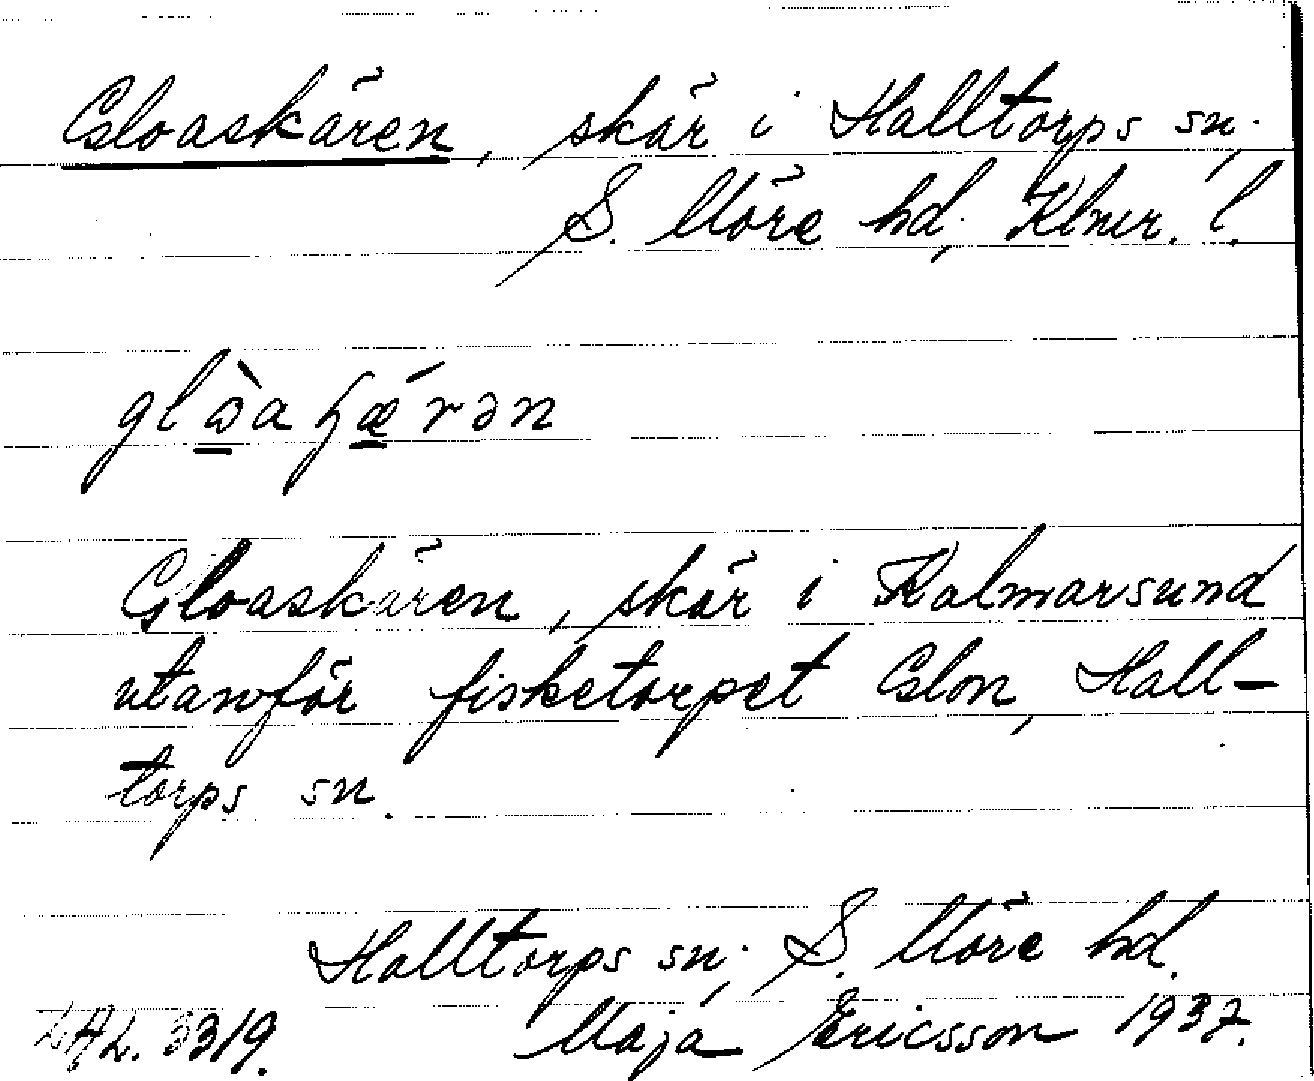 Gloaskären, skär i Halltorps sn.,
S. Möre hd, Klmr. l.
Gloaskären, skär i Kalmarsund
utanför fisketorpet Glon, Hall-
torps sn.
Halltorps sn., S. Möre hd.
LAL. 3319. Maja Ericsson 1937.